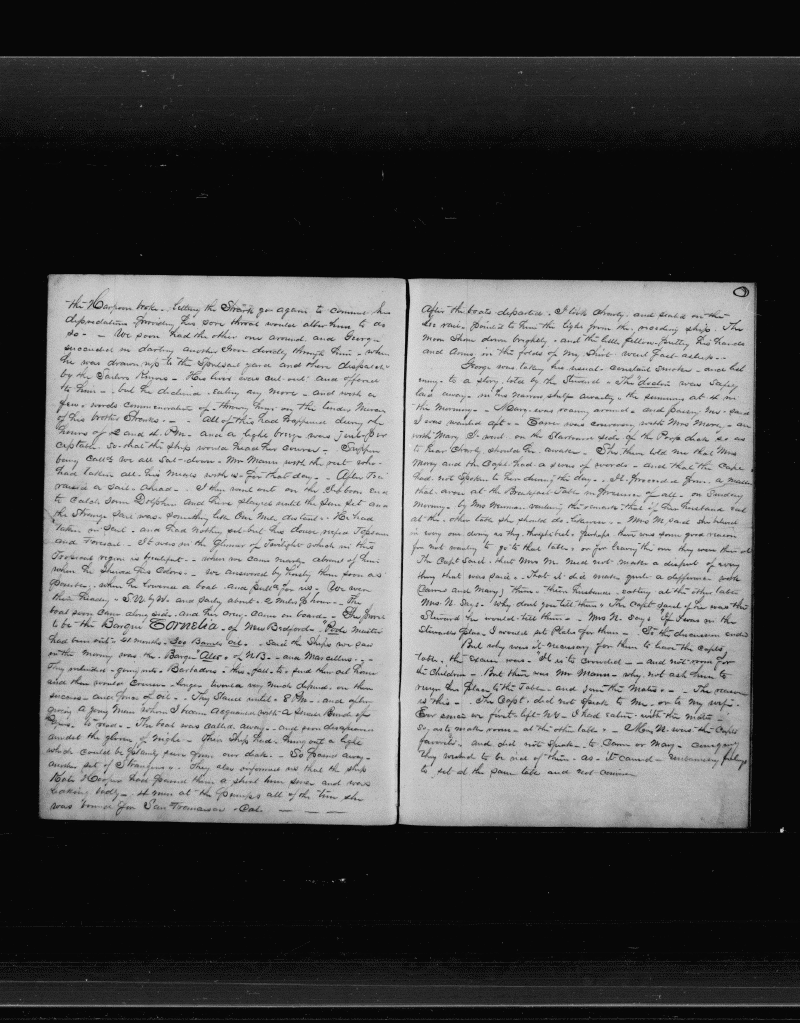 the Harpoon broke. Letting the Shark go again to commit his
depredations providing his sore throat would allow him to do
so. - We soon had the other one around and George
succeeded in darting another Iron directly through him - when
he was drawn up to the Spritsail yard and there dispatched
by the Sailors Knives - His liver was cut out and offered
to him - but he declined eating any more - and with a
few words commemorative of
of his brother Sharks. - All of this had happened during the
hours of 2 and 4 PM. and a light breeze was
Captain so that the ship would head her course. - Supper
being called we all sat down. Mr Mann with the rest who
had taken all his meals with us for that day. - After Tea
raised a Sail ahead - I then went out on the Jibboom end
to catch some Dolphin and have stayed until the Sun set and
the Strange Sail was something like One mile distant. He had
taken in Sail and had nothing set but his close reefed Topsails
and Foresail. It was in the glimmer of Twilight which in this
Tropical region is beautiful - when we came nearly abreast of him
when he showed his Colors. - We answered by hoisting them soon as
possible, when he lowered a boat and pulled for us. We were
then heading S.W. by W. and sailing about 2 miles & hour - The
boat soon came along side and her crew came on board. She proved
to be the Barque Cornelia of New Bedford.
had been out 21 months. 300 Barrels oil. - Said the Ships we saw
in the morning was the Barque Alto of N.B. - and Marcellus. -
They intended going into Barbadoes this fall to send their oil home
and then would Cruise longer. Would very much depend on their
success and price of oil. They Stayed until 8 PM. and after
giving a young man whom I became acquainted with a small Bundle of
to read. The boat was called away - and soon disappeared
amidst the gloom of night - Their Ship had hung out a light
which could be plainly seen from our deck. - So passed away
another set of Strangers. They also informed us that the ship
Bob Hooper had passed them a short time since and was
leaking badly. 12 men at the pumps all of the time she
was bound for San Francisco Cal.
After the boats departed. I took Charly and seated on the
lee rail. Pointed to him the light from the receding ship. The
Moon Shone down brightly, and the little fellow putting his hands
and Arms in the folds of my Shirt went fast asleep. -
George was taking his usual smoke - and list
ening to a story told by the Steward. The doctor was safely
laid away in his narrow shelf awaiting the summons at 4 in
the Morning. - Mary was roaming around and passing me said
I was wanted aft. - Came was conversing with Mrs Mory - and
with Mary I went on the Starboard side of the Poop deck so as
to hear Charly should he awaken. She then told me that Mrs
Mory and the Capt had a series of words - and that the Capt
had not spoken to her during the day. It proceeded from a matter
that arose at the Breakfast Table in presence of all on Sunday
morning by Mrs Morrow making the remark that if her Husband sat
at the other table she should do likewise. - Mrs M said she blamed
in every one doing as they thought best. Perhaps there was some good reason
for not wanting to go to that table. or for leaving the one they were then at
The Capt Said that Mrs M need not make a dispute of every
thing that was said. That it did make quite a difference with
Came and Mary; them. their Husbands eating at the other table
Mrs N. Says. Why dont you tell them. The Capt said if he was the
Steward he would tell them. - Mrs N. Says If I was in the
Stewards place I would set Plates for them. - So the discussion ended
But why was it necessary for them to leave the Capts
table. the excuse was. It is to crowded - and not room for
the Children - But there was Mr Mann - why not ask him to
resign his place to the Table and join the Mates. - The reason
is this - The Capt. did not speak to me or to my wife.
Ever since we first left NY. I had eaten with the mates
So as to make room at the other table. Mrs N. was the Capts
favorite. and did not speak to Came or Mary - consequently
they wished to be rid of them. as it caused unnecessary feelings
to sit at the same table and not converse